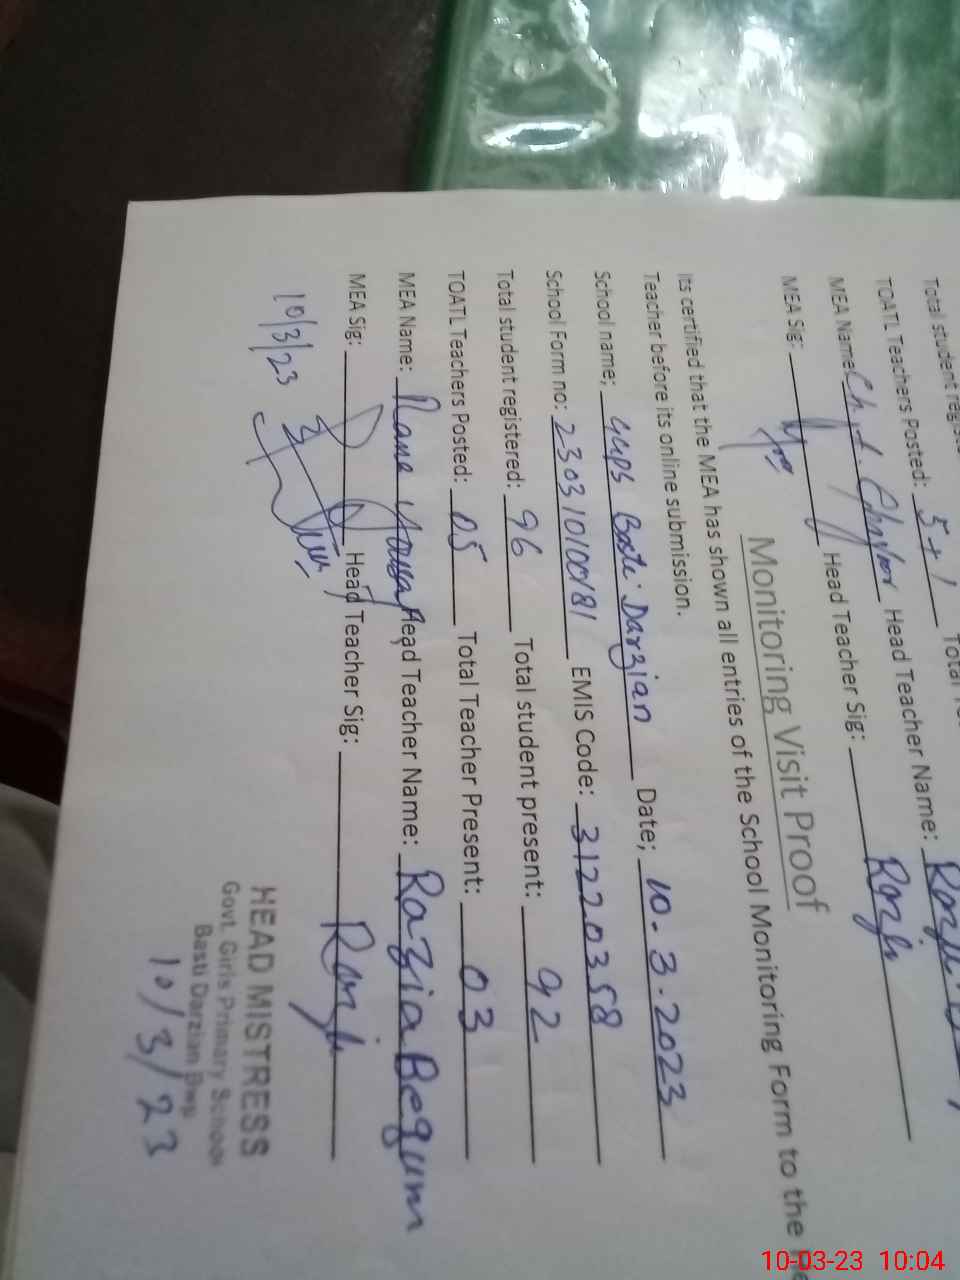 Total student regis
TOATL Teachers Posted: 5+1 Total
MEA Name: Head Teacher Name:
MEA Sig: Head Teacher Sig: Razia
Monitoring Visit Proof
Its certified that the MEA has shown all entries of the School Monitoring Form to the He
Teacher before its online submission.
School name; GGPS Basti Darzian Date; 10-3-2023
School Form no: 230310100181 EMIS Code: 31220358
Total student registered: 96 Total student present: 92
TOATL Teachers Posted: 05 Total Teacher Present: 03
MEA Name: Rana Head Teacher Name: Razia Begum
MEA Sig: Head Teacher Sig: Razia
10/3/23
HEAD MISTRESS
Govt. Girls Primary School
Basti Darzian Bwp
10/3/23
10-03-23 10:04